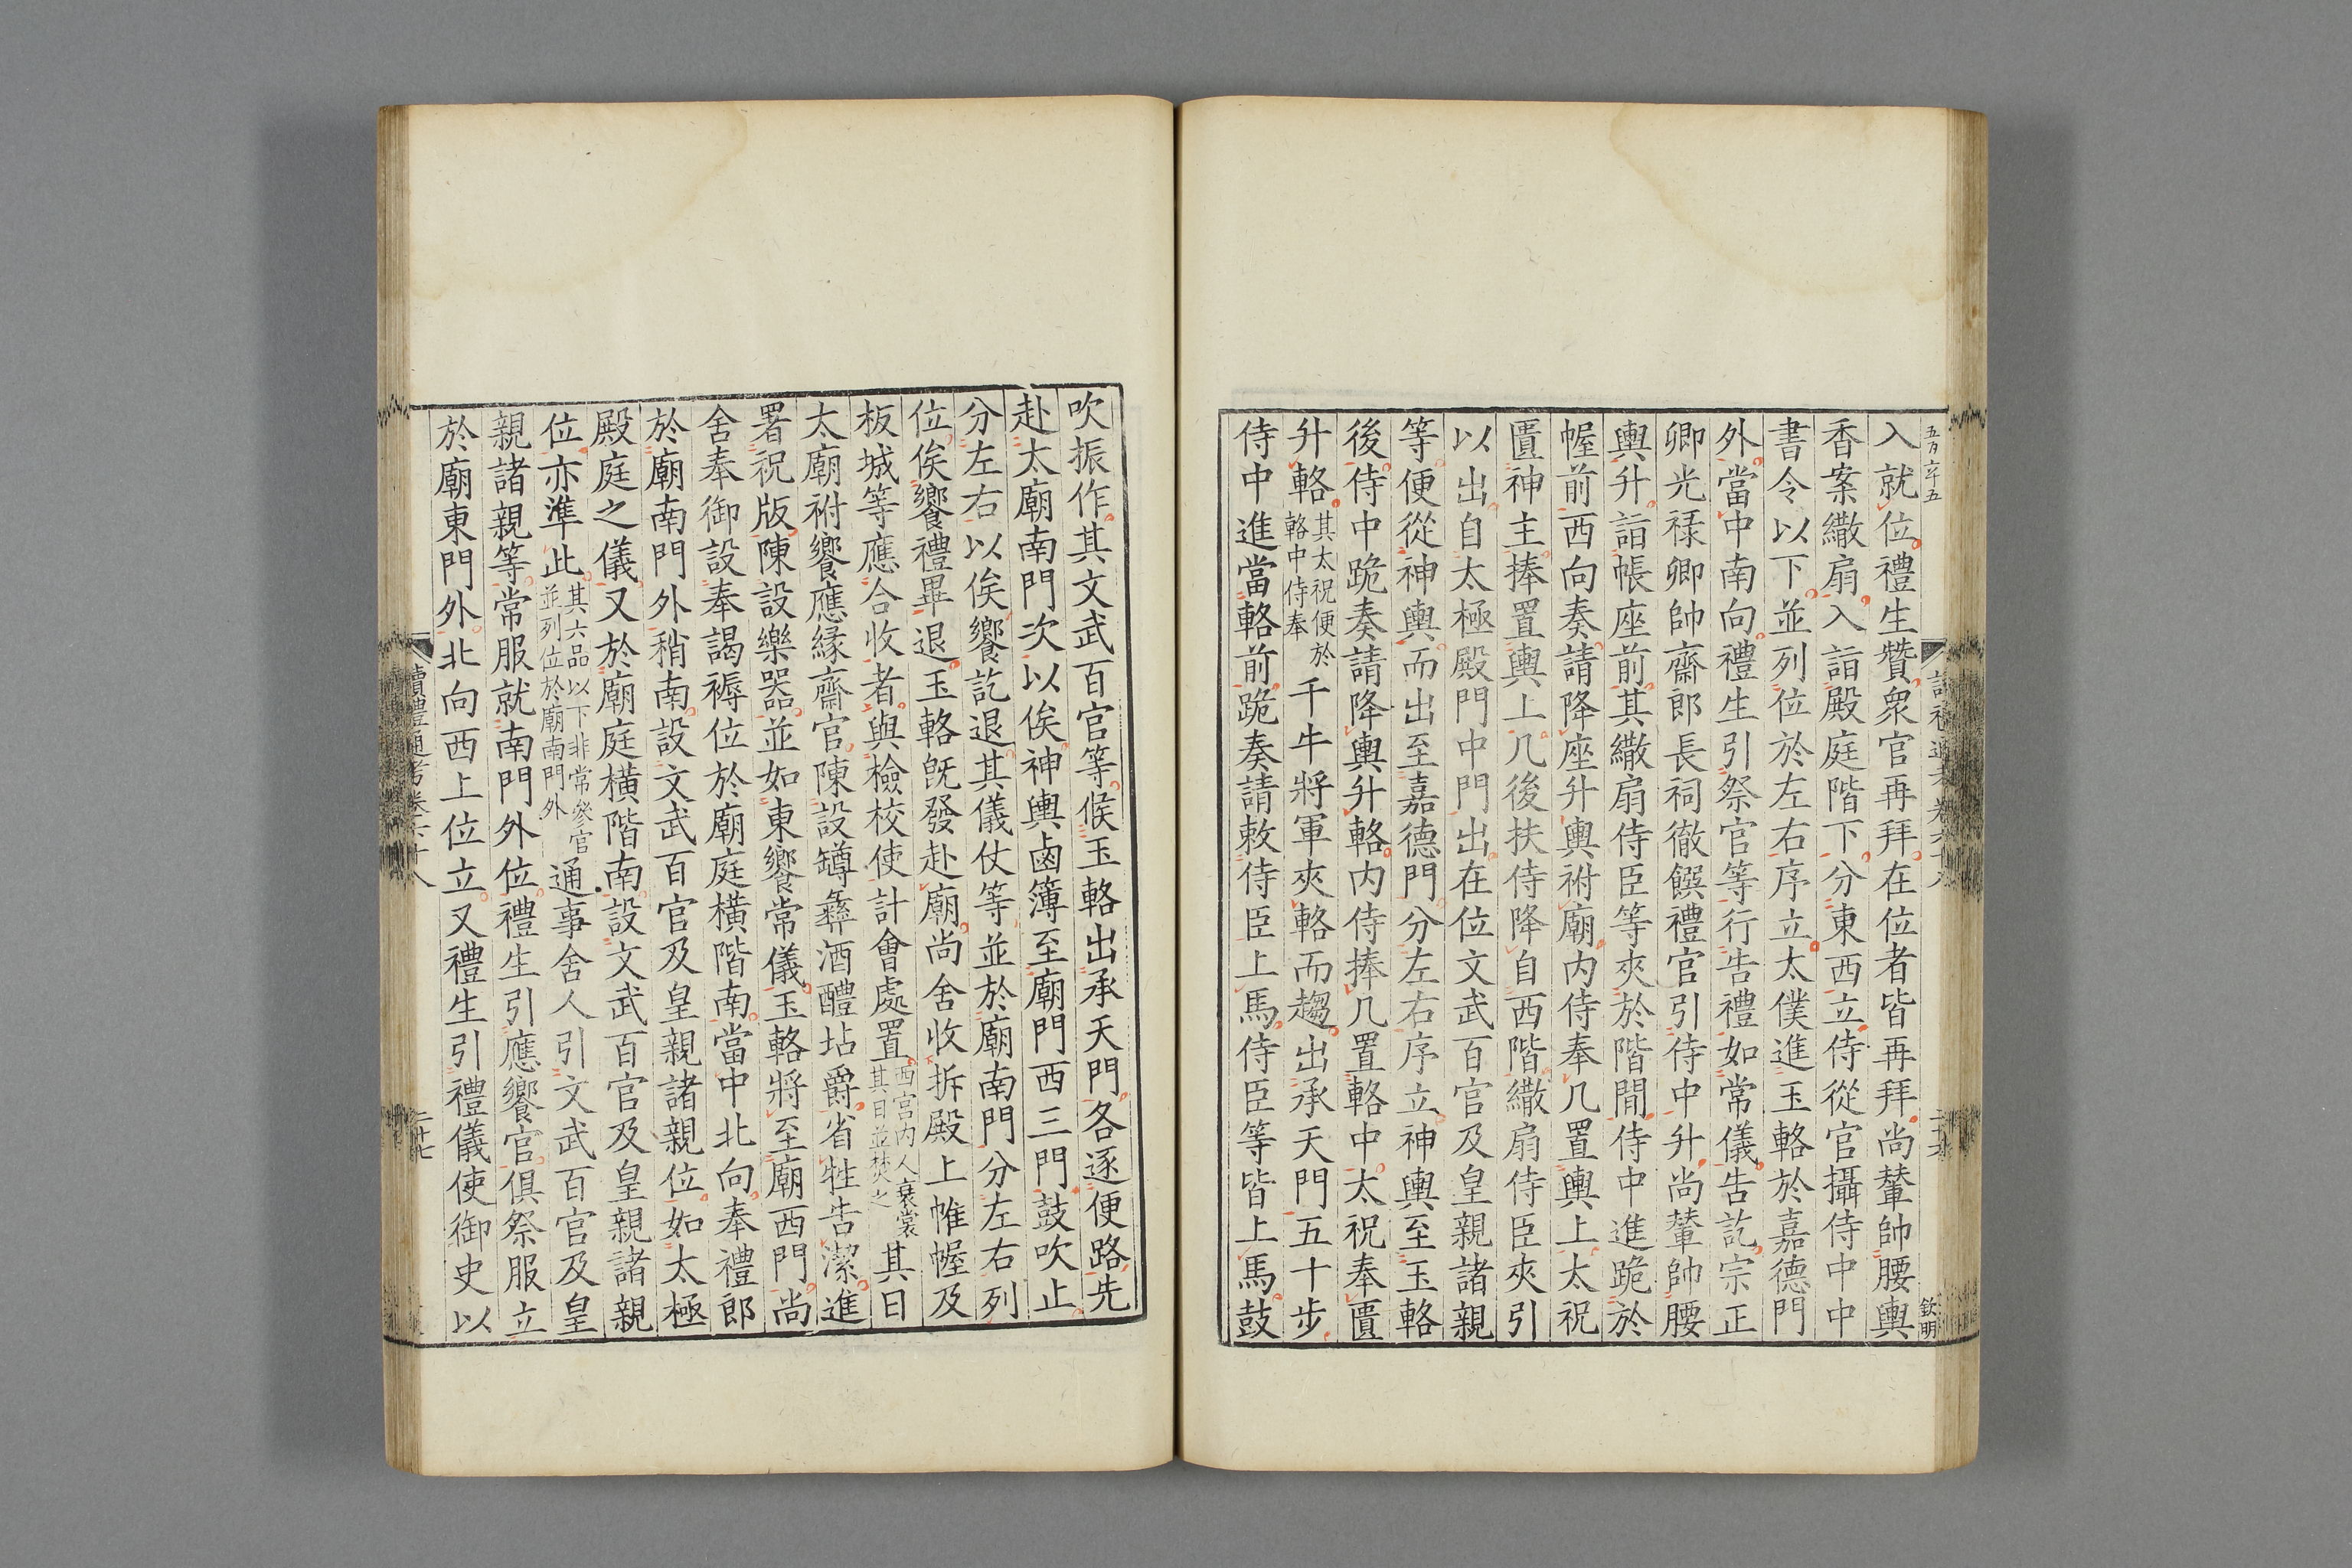 入就位禮生贊衆官再拜在位者皆再拜尚輦帥腰輿
香案繖扇入詣殿庭階下分東西立侍從官攝侍中中
書令以下並列位於左右序立太僕進玉輅於嘉德門
外當中南向禮生引祭官等行告禮如常儀告訖宗正
卿光祿卿帥齋郎長祠徹饌禮官引侍中升尚輦帥腰
輿升詣帳座前其繖扇侍臣等夾於階間侍中進跪於
幄前西向奏請降座升輿祔廟內侍奉几置輿上太祝
匱神主捧置輿上几後扶侍降自西階繖扇侍臣夾引
以出自太極殿門中門出在位文武百官及皇親諸親
等便從神輿而出至嘉德門分左右序立神輿至玉輅
後侍中跪奏請降輿升輅內侍捧几置輅中太祝奉匱
升輅其太祝便於輅中侍奉千牛將軍夾輅而趨出承天門五十步
侍中進當輅前跪奏請敕侍臣上馬侍臣等皆上馬鼓
吹振作其文武百官等候玉輅出承天門各逐便路先
赴太廟南門次以俟神輿鹵簿至廟門西三門鼓吹止
分左右以俟饗訖退其儀仗等並於廟南門分左右列
位俟饗禮畢退玉輅既發赴廟尚舍收拆殿上帷幄及
板城等應合收者與檢校使計會處置西宮內人衰裳其日並焚之其日
太廟祔饗應緣齋官陳設罇彝酒醴坫爵省牲告潔進
署祝版陳設樂器並如東饗常儀玉輅將至廟西門尚
舍奉御設奉謁褥位於廟庭橫階南當中北向奉禮郎
於廟南門外稍南設文武百官及皇親諸親位如太極
殿庭之儀又於廟庭橫階南設文武百官及皇親諸親
位亦準此其六品以下非常參官並列位於廟南門外通事舍人引文武百官及皇
親諸親等常服就南門外位禮生引應饗官俱祭服立
於廟東門外北向西上位立又禮生引禮儀使御史以
讀禮通考卷六十八
二十七
欽明